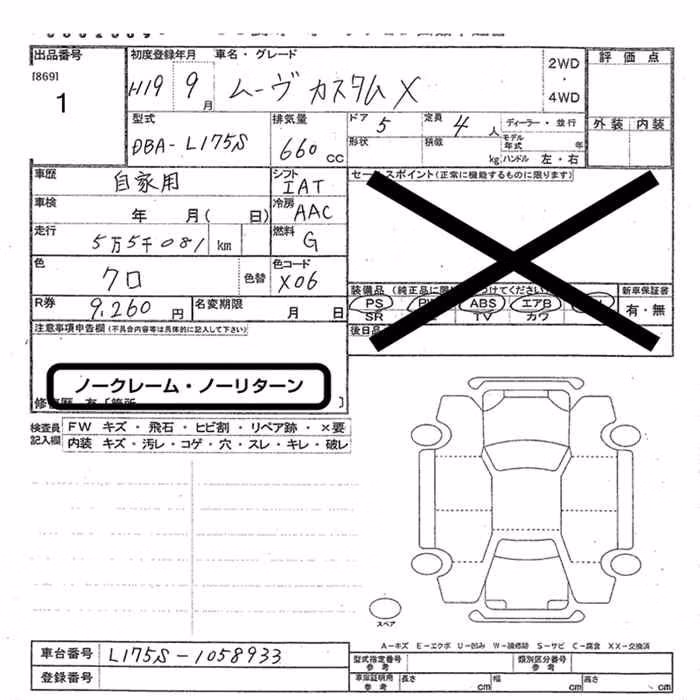 出品番号
[869]
1
初度登録年月
H19 9月
車名・グレード
ムーヴ カスタム X
2WD
・
4WD
評価点
外装 内装
型式
DBA-L175S
排気量
660 CC
ドア 5
定員 4 人
ディーラー・並行
形状
積載 kg
モデル年式 年
ハンドル 左・右
車歴
自家用
シフト
IAT
セールスポイント(正常に機能するものに限ります)
車検
年 月( 日)
冷房
AAC
走行
5万5千081 km
燃料
G
色
クロ
色替
色コード
X06
装備品
PS
ABS
エアB
SR
TV
カワ
新車保証書
有・無
R券
9,260 円
名変期限
月 日
後日品
注意事項申告欄(不具合内容等は具体的に記入して下さい)
ノークレーム・ノーリターン
検査員記入欄
FW キズ・飛石・ヒビ割・リペア跡・×要
内装 キズ・汚レ・コゲ・穴・スレ・キレ・破レ
スペア
A-キズ E-エクボ U-凹み W-補修跡 S-サビ C-腐食 XX-交換済
車台番号
L175S-1058933
登録番号
型式指定番号
参考
類別区分番号
参考
車庫証明用
参考
長さ cm
幅 cm
高さ cm